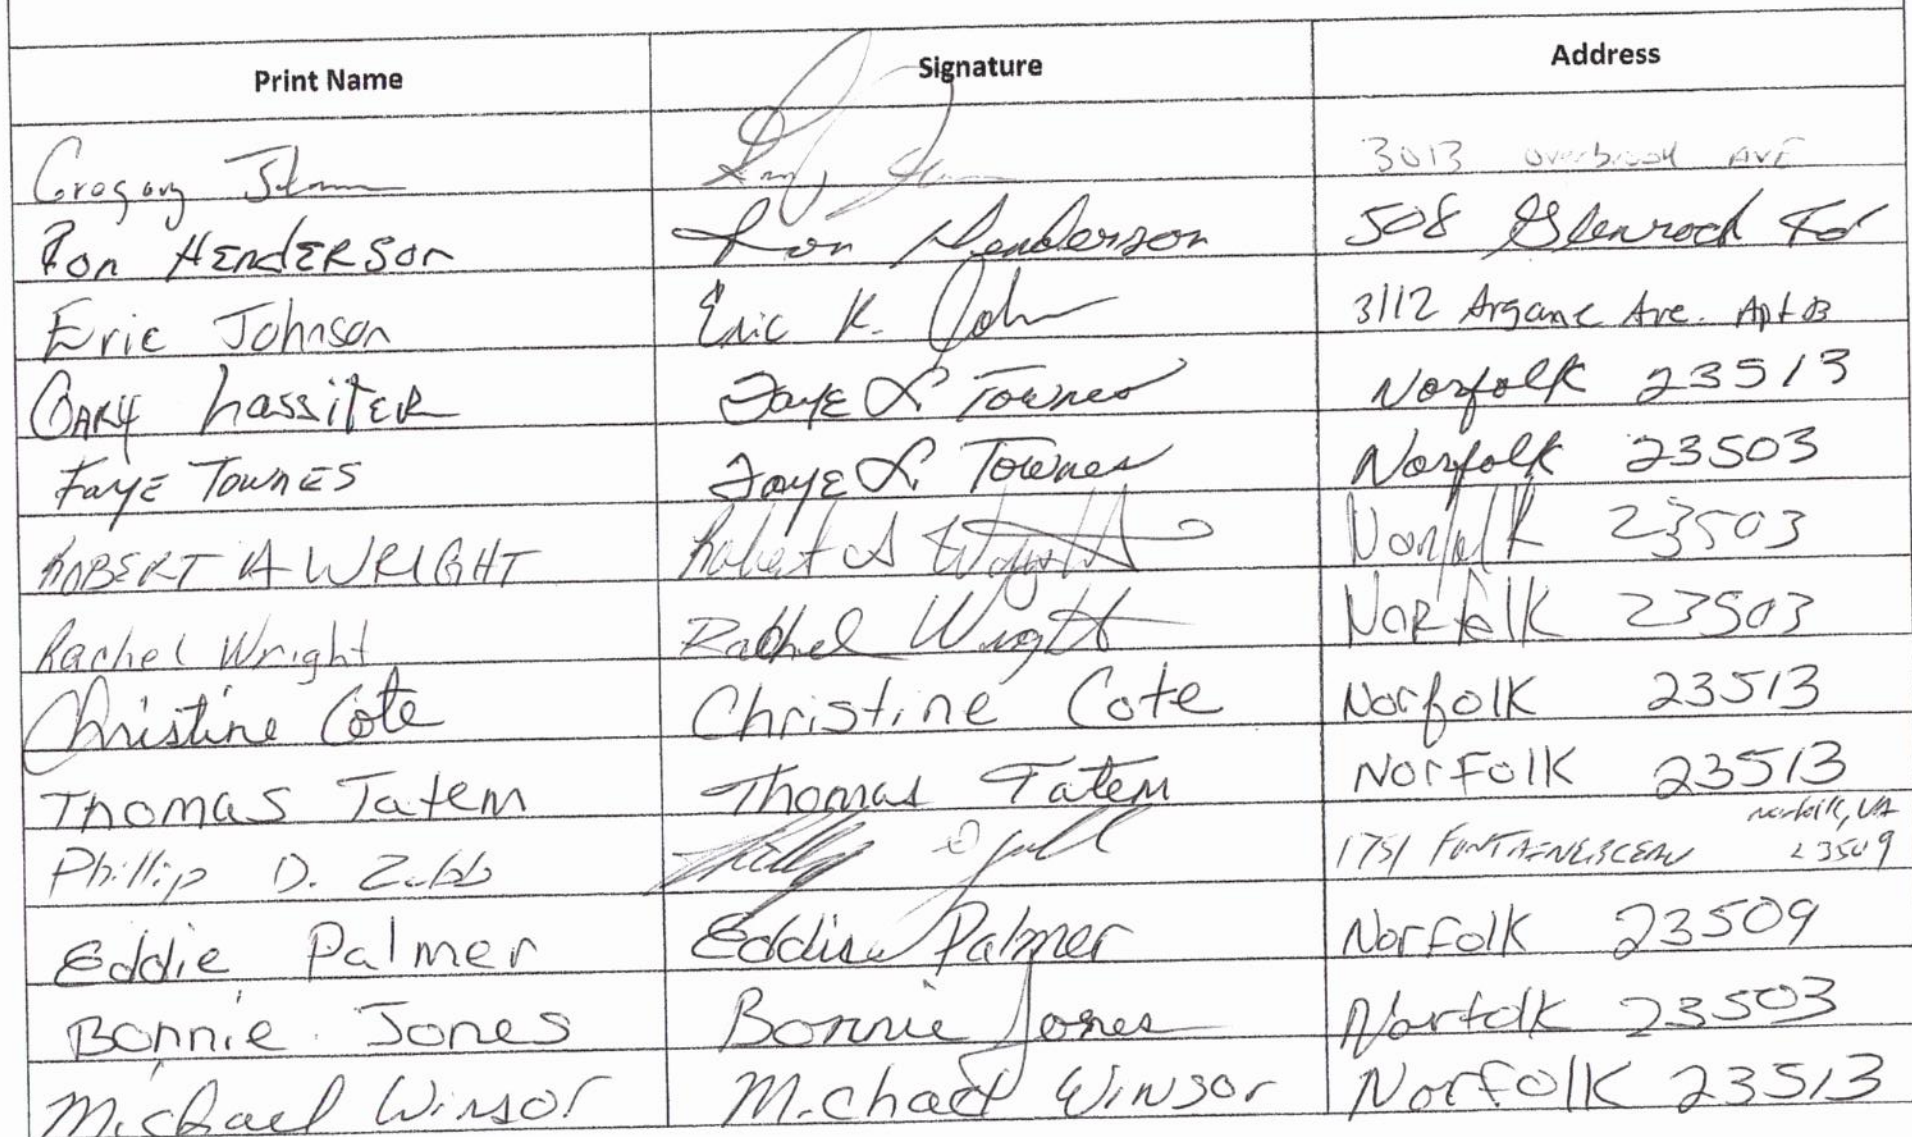 Print Name Signature Address
Gregory 3013 Overbrook AVE
Ron HENDERSON Ron Henderson 508 Glenrock Rd
Eric Johnson Eric K. John 3112 Argane Ave. Apt B
GARY LassiTER Faye L. Townes Norfolk 23513
FAYE TOWNES Faye L. Townes Norfolk 23503
ROBERT A WRIGHT Robert A Wright Norfolk 23503
Rachel Wright Rachel Wright NORfolk 23503
Christine Cote Christine Cote Norfolk 23513
Thomas Tatem Thomas Tatem Norfolk 23513
Norfolk, VA
Phillip D. 1751 23509
Eddie Palmer Eddie Palmer Norfolk 23509
Bonnie Jones Bonnie Jones Norfolk 23503
Michael Winsor Michael Winsor Norfolk 23513